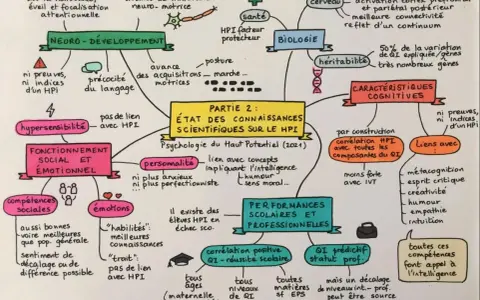 éveil et focalisation
attentionnelle
neuro-motrice
NEURO-DÉVELOPPEMENT
ni preuves,
ni indices
d'un HPI
précocité
du langage
avance
des acquisitions
motrices
posture
marche
santé
HPI facteur
protecteur
cerveau
et pariétal postérieur
meilleure connectivité
reflet d'un continuum
BIOLOGIE
héritabilité
50% de la variation
de QI expliquée/gènes
très nombreux gènes
PARTIE 2 :
ÉTAT DES CONNAISSANCES
SCIENTIFIQUES SUR LE HPI
Psychologie du Haut Potentiel (2021)
CARACTÉRISTIQUES
COGNITIVES
par construction
corrélation HPI
avec toutes les
composantes du QI
moins forte
avec IVT
ni preuves,
ni indices
d'un HPI
liens avec
métacognition
esprit critique
créativité
humour
empathie
intuition
toutes ces
compétences
font appel à
l'intelligence
hypersensibilité
pas de lien
avec HPI
FONCTIONNEMENT
SOCIAL ET
ÉMOTIONNEL
personnalité
ni plus anxieux
ni plus perfectionniste
lien avec concepts
impliquant l'intelligence
humour
sens moral...
compétences
sociales
aussi bonnes
voire meilleures
que pop. générale
sentiment de
décalage ou de
différence possible
émotions
"habilité":
meilleures
connaissances
"trait":
pas de lien
avec HPI
PERFORMANCES
SCOLAIRES ET
PROFESSIONNELLES
il existe des
élèves HPI en
échec sco.
corrélation positive
QI - réussite scolaire
tous
âges
(maternelle
tous
niveaux
de QI
toutes
matières
sf EPS
QI prédictif
statut prof.
mais un décalage
de niveau int.- prof.
peut être source